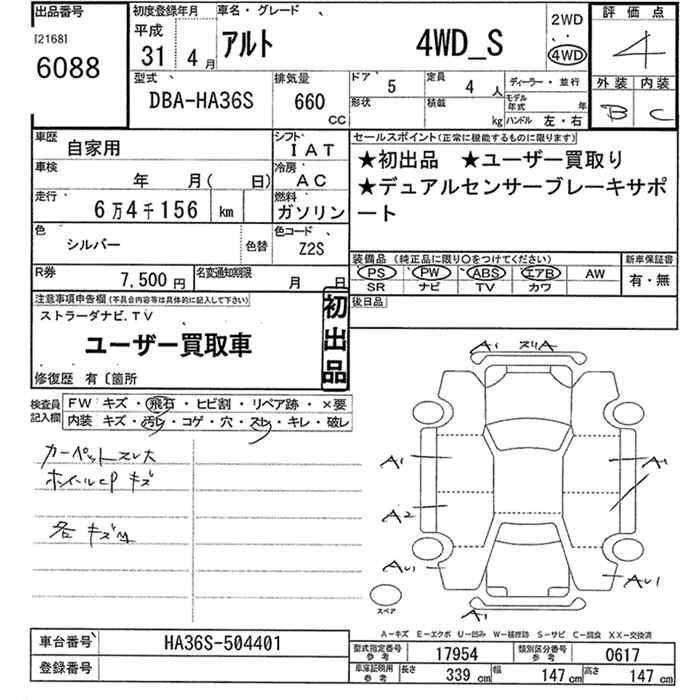 出品番号
[2168]
6088
初度登録年月
平成
31 年 4 月
車名・グレード
アルト 4WD_S
2WD
・・
4WD
評価点
4
外装 内装
B C
型式
DBA-HA36S
排気量
660
CC
ドア 5
形状
定員 4 人
積載 kg
ディーラー・並行
モデル年式 年
ハンドル 左・右
車歴
自家用
シフト
IAT
車検
年 月( 日)
冷房
AC
走行
6万4千156 km
燃料
ガソリン
色
シルバー
色替
色コード
Z2S
R券
7,500円
名変通知期限
月 日
セールスポイント(正常に機能するものに限ります)
★初出品 ★ユーザー買取り
★デュアルセンサーブレーキサポ
ート
装備品 (純正品に限り○をつけてください)
PS PW ABS エアB AW
SR ナビ TV カワ
新車保証書
有・無
後日品
注意事項申告欄(不具合内容等は具体的に記入して下さい)
ストラーダナビ.TV
ユーザー買取車
初出品
修復歴 有〔箇所
検査員
記入欄
FW キズ・飛石・ヒビ割・リペア跡・×要
内装 キズ・汚レ・コゲ・穴・スレ・キレ・破レ
カーペットスレ大
ホイールCP キズ
各 キズ
A1 スリA
A1
A1
A2
AU1
AU1
A1
スペア
A-キズ E-エクボ U-凹み W-補修跡 S-サビ C-腐食 XX-交換済
車台番号
HA36S-504401
登録番号
型式指定番号
参考
17954
類別区分番号
参考
0617
車庫証明用
参考
長さ 339 cm 幅 147 cm 高さ 147 cm